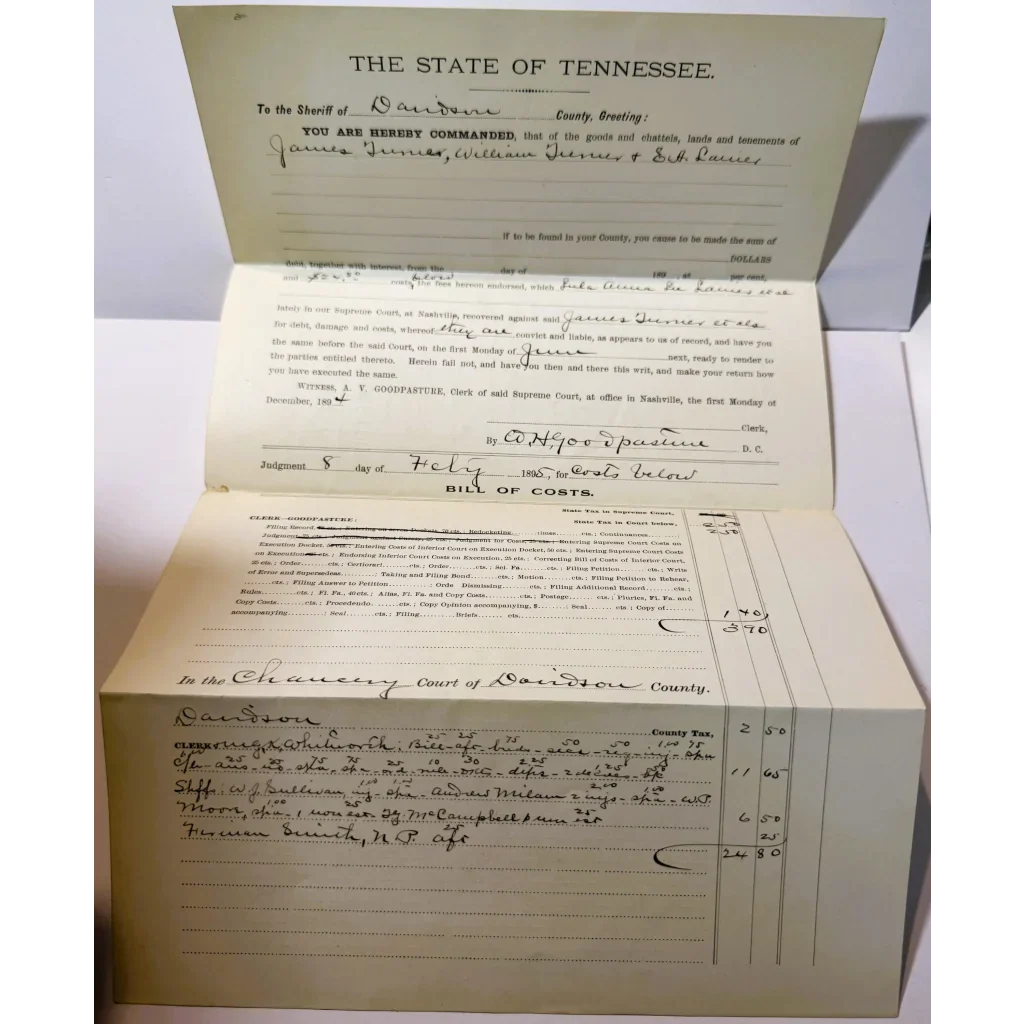 THE STATE OF TENNESSEE.
To the Sheriff of Davidson County, Greeting:
YOU ARE HEREBY COMMANDED, that of the goods and chattels, lands and tenements of
James Turner, William Turner & S.A. Lanier
if to be found in your County, you cause to be made the sum of
DOLLARS
debt, together with interest, from the day of 189 , at per cent,
and $24.80 costs, below the fees hereon endorsed, which Lula Anna Lee Lanier et al
lately in our Supreme Court, at Nashville, recovered against said James Turner et als
for debt, damage and costs, whereof they are convict and liable, as appears to us of record, and have you
the same before the said Court, on the first Monday of June next, ready to render to
the parties entitled thereto. Herein fail not, and have you then and there this writ, and make your return how
you have executed the same.
WITNESS, A. V. GOODPASTURE, Clerk of said Supreme Court, at office in Nashville, the first Monday of
December, 1894
Clerk,
By W.H. Goodpasture D. C.
Judgment 8 day of Feby 1895, for costs below
BILL OF COSTS.
State Tax in Supreme Court,
CLERK—GOODPASTURE: State Tax in Court below, 2 50
Filing Record, Entering on seven Dockets, 70 cts.; Redocketing times cts.; Continuances
Judgment, 75 cts.; Judgment against Surety, 25 cts.; Judgment for Costs, 25 cts.; Entering Supreme Court Costs on
Execution Docket, cts.; Entering Costs of Inferior Court on Execution Docket, 50 cts.; Entering Supreme Court Costs
on Execution cts.; Endorsing Inferior Court Costs on Execution, 25 cts.; Correcting Bill of Costs of Inferior Court,
25 cts.; Order cts.; Certiorari cts.; Order cts.; Sci. Fa. cts.; Filing Petition cts.; Writs
of Error and Supersedeas ; Taking and Filing Bond cts.; Motion cts.; Filing Petition to Rehear,
cts.; Filing Answer to Petition ; Orde Dismissing cts.; Filing Additional Record cts.;
Rules cts.; Fi. Fa., 40 cts.; Alias, Fi. Fa. and Copy Costs cts.; Postage cts.; Pluries, Fi. Fa. and
Copy Costs cts.; Procedendo cts.; Copy Opinion accompanying, $ Seal cts.; Copy of
accompanying ; Seal cts.; Filing Briefs cts. 1 40
3 90
In the Chancery Court of Davidson County.
Davidson County Tax, 2 50
25 25 75 50 50 1.00 75
CLERK Whitworth: Bill - afr - bnds -
25 75 75 25 10 30 2 25
11 65
Shff: W.J. Sullivan, - spa - Andrew Milam 2 injs - spa - W.P.
Moore, spa - 1 McCampbell 6 50
Firman Smith, N.P. afr 25 25
24 80